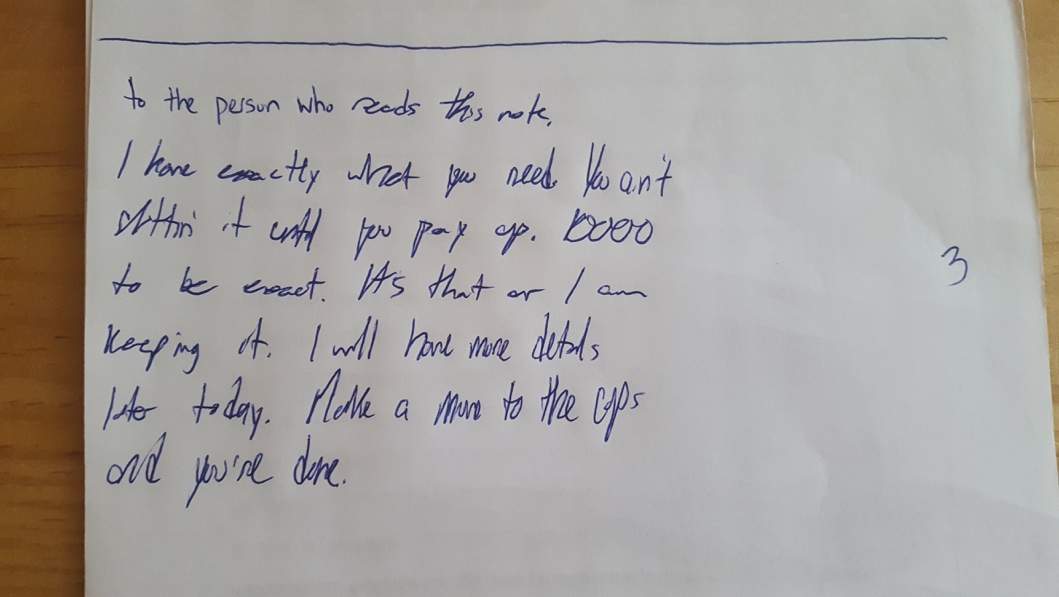 to the person who reads this note,
I have exactly what you need. You ain't
gittin' it until you pay up. 10000
to be exact. It's that or I am
3
keeping it. I will have more details
later today. Make a move to the cops
and you're done.